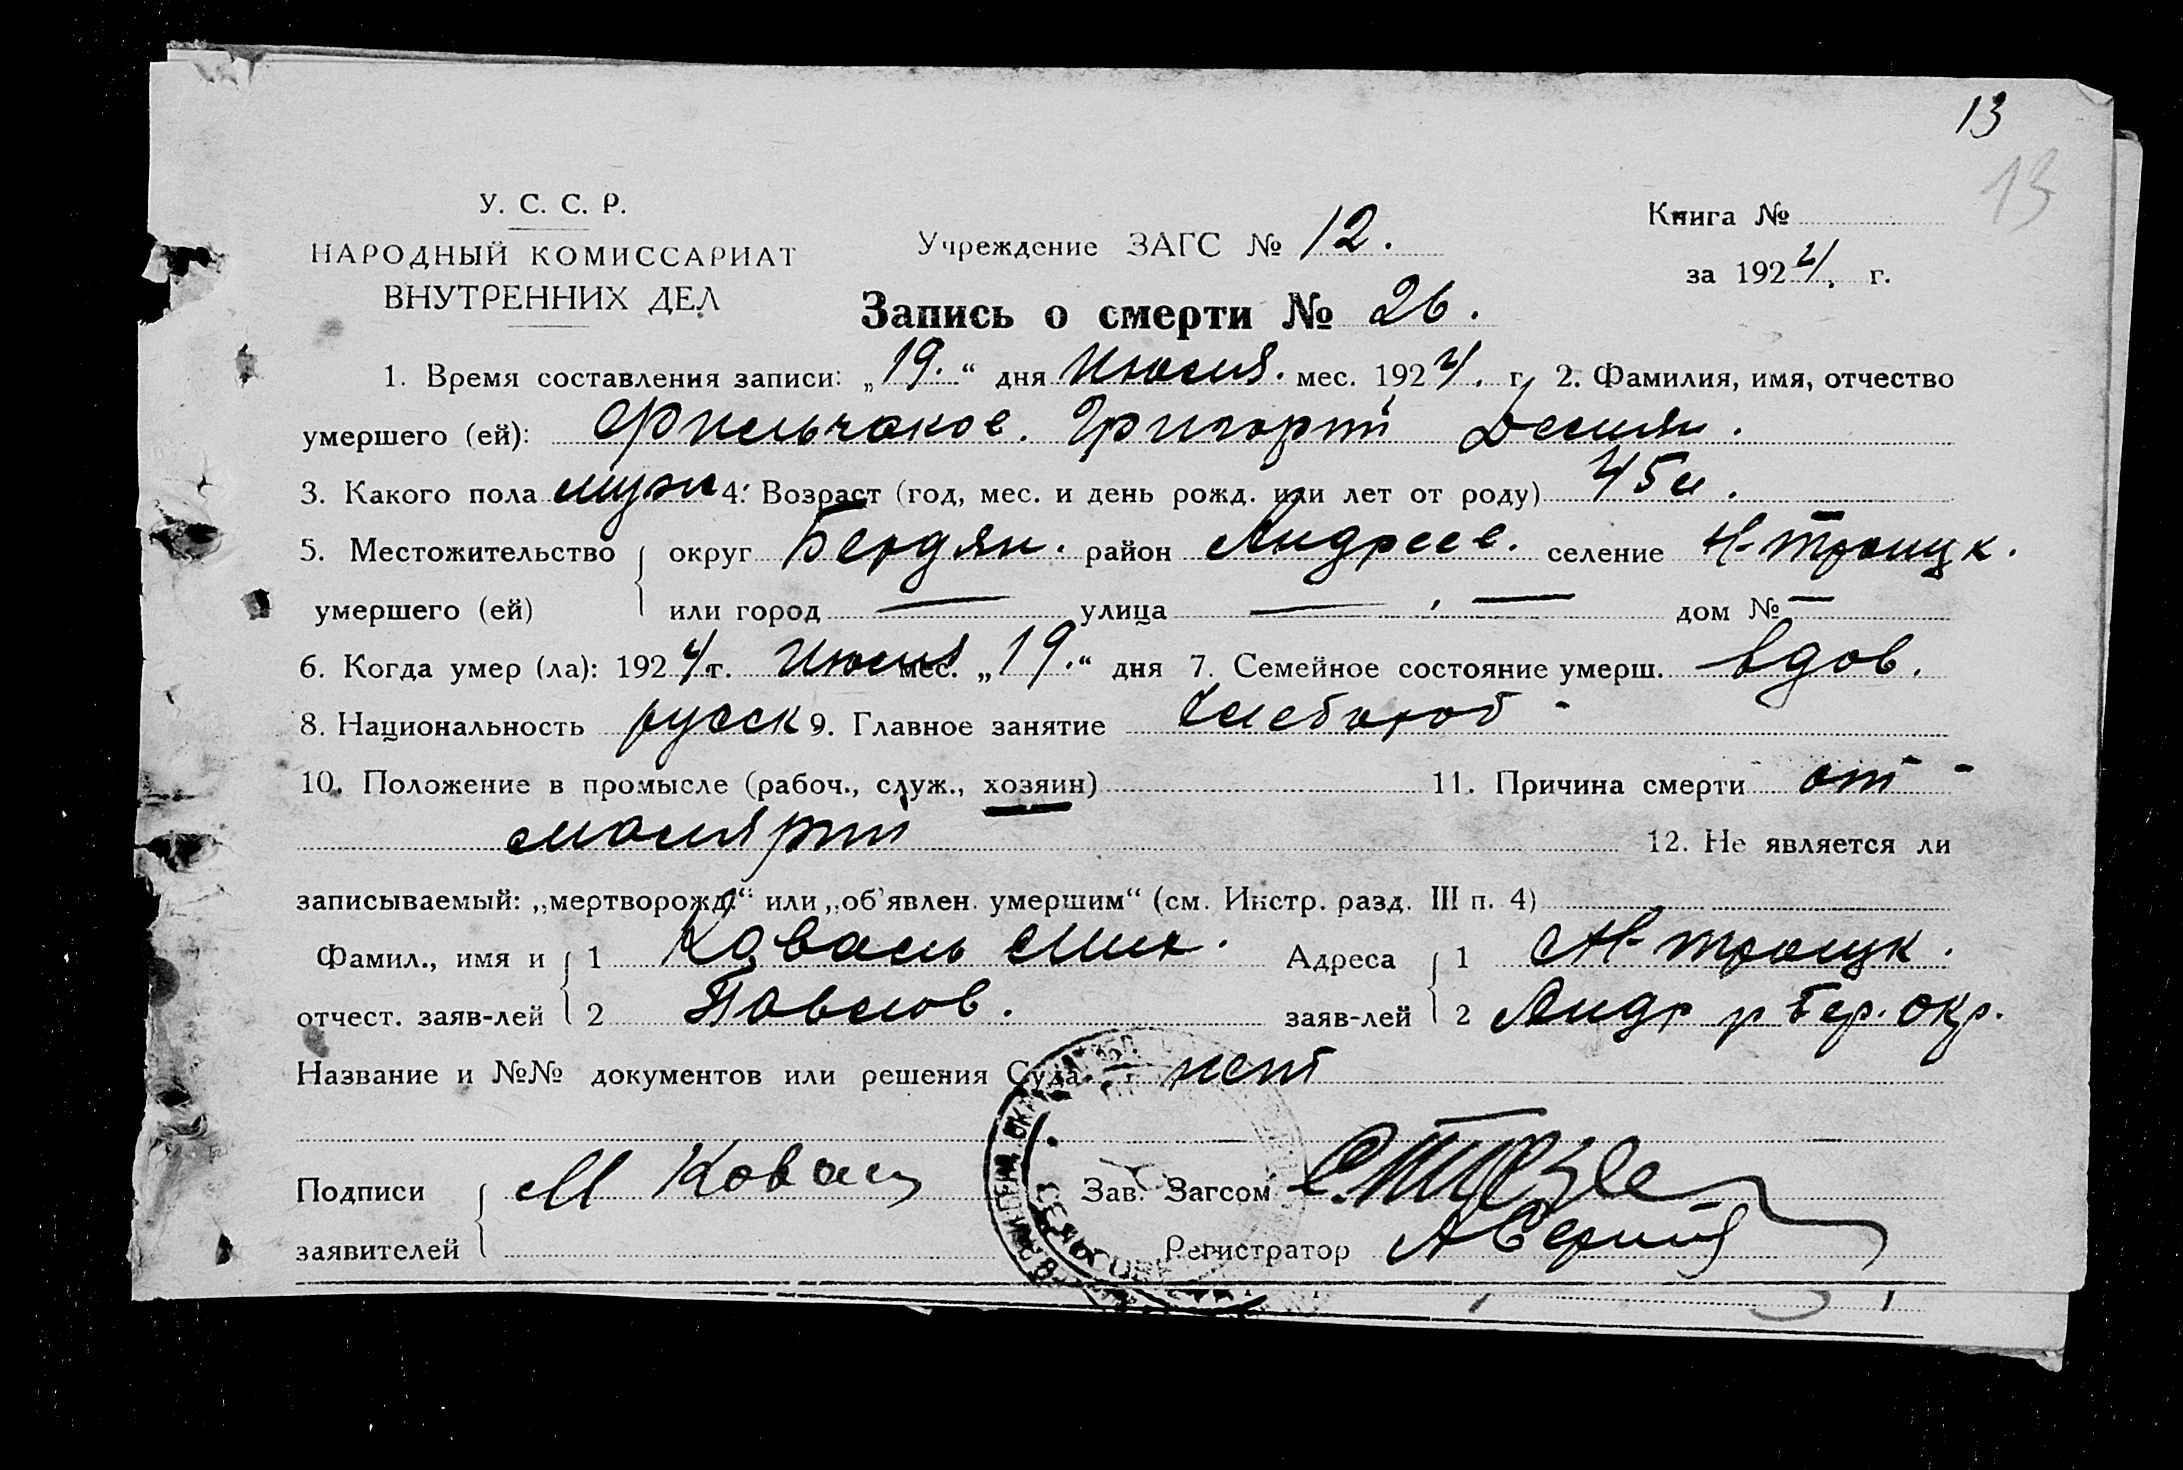 13
13
У. С. С. Р.
НАРОДНЫЙ КОМИССАРИАТ
ВНУТРЕННИХ ДЕЛ
Учреждение ЗАГС № 12.
Книга №
за 1924. г.
Запись о смерти № 26.
1. Время составления записи: „19.“ дня Июля. мес. 1924. г. 2. Фамилия, имя, отчество
умершего (ей): Фильчаков. Григорий Демян.
3. Какого пола муж 4. Возраст (год, мес. и день рожд. или лет от роду) 45 л.
5. Местожительство { округ Бердян. район Андреев. селение Н-Троицк.
умершего (ей) или город — улица — , — дом № —
6. Когда умер (ла): 1924 г. Июля мес. „19.“ дня 7. Семейное состояние умерш. вдов.
8. Национальность русск 9. Главное занятие Хлебороб -
10. Положение в промысле (рабоч., служ., хозяин) 11. Причина смерти от -
малярии 12. Не является ли
записываемый: „мертворожд.“ или „об'явлен. умершим“ (см. Инстр. разд. III п. 4)
Фамил., имя и { 1 Коваль Мих. Адреса { 1 Н-Троицк.
отчест. заяв-лей 2 Павлов. заяв-лей 2 Андр р Бер. окр.
Название и №№ документов или решения Суда — нет
Подписи { М Коваль Зав. Загсом
заявителей Регистратор
СЕЛЬСОВ